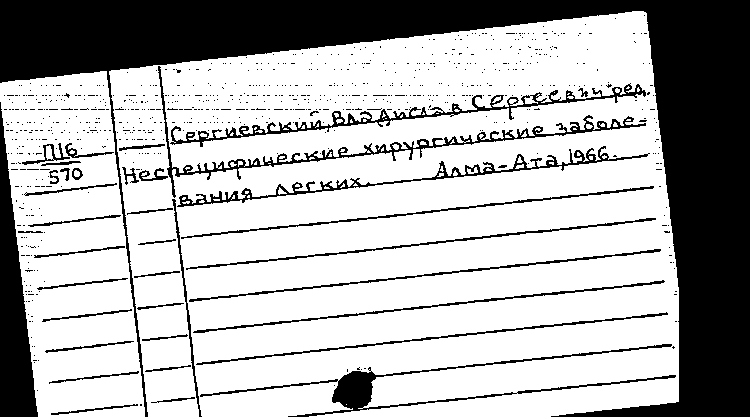 Сергиевский, Владислав Сергеевич ред.
П16
570
Неспецифические хирургические заболе-
вания легких. Алма-Ата, 1966.